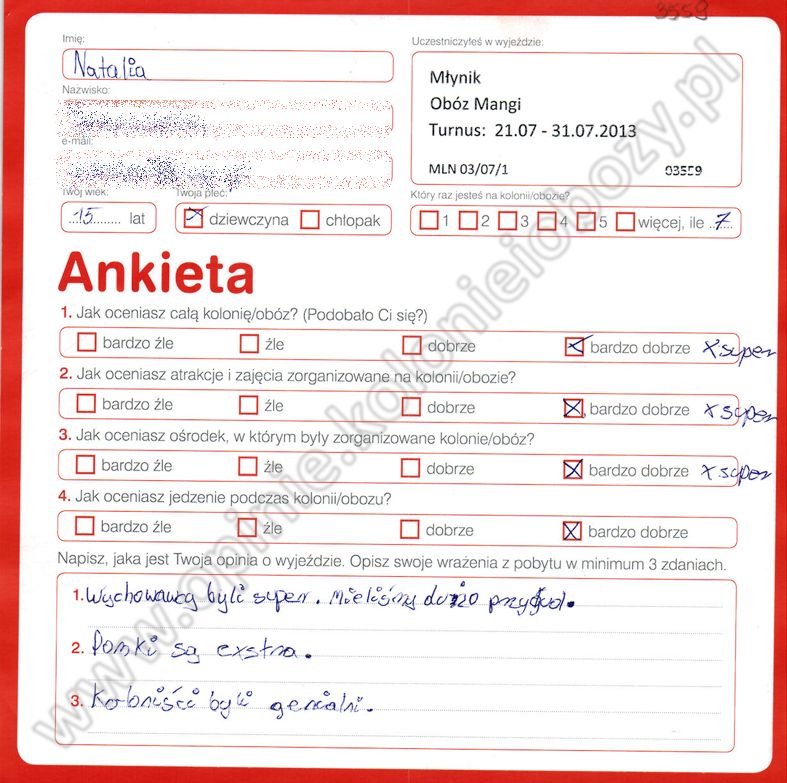 3559
Imię:
Natalia
Nazwisko:
e-mail:
Twój wiek:
15 lat
Twoja płeć:
x dziewczyna chłopak
Uczestniczyłeś w wyjeździe:
Młynik
Obóz Mangi
Turnus: 21.07 - 31.07.2013
MLN 03/07/1 03559
Który raz jesteś na kolonii/obozie?
1 2 3 4 5 więcej, ile 7
Ankieta
1. Jak oceniasz całą kolonię/obóz? (Podobało Ci się?)
bardzo źle źle dobrze x bardzo dobrze x super
2. Jak oceniasz atrakcje i zajęcia zorganizowane na kolonii/obozie?
bardzo źle źle dobrze x bardzo dobrze x super
3. Jak oceniasz ośrodek, w którym były zorganizowane kolonie/obóz?
bardzo źle źle dobrze x bardzo dobrze x super
4. Jak oceniasz jedzenie podczas kolonii/obozu?
bardzo źle źle dobrze x bardzo dobrze
Napisz, jaka jest Twoja opinia o wyjeździe. Opisz swoje wrażenia z pobytu w minimum 3 zdaniach.
1. Wychowawcy byli super. Mieliśmy dużo przygód.
2. Domki są exstra.
3. Koloniści byli genialni.
www.opinie.kolonieiobozy.pl